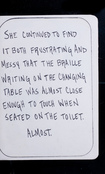 SHE CONTINUED TO FIND
IT BOTH FRUSTRATING AND
MESSY THAT THE BRAILLE
WRITING ON THE CHANGING
TABLE WAS ALMOST CLOSE
ENOUGH TO TOUCH WHEN
SEATED ON THE TOILET.
ALMOST.